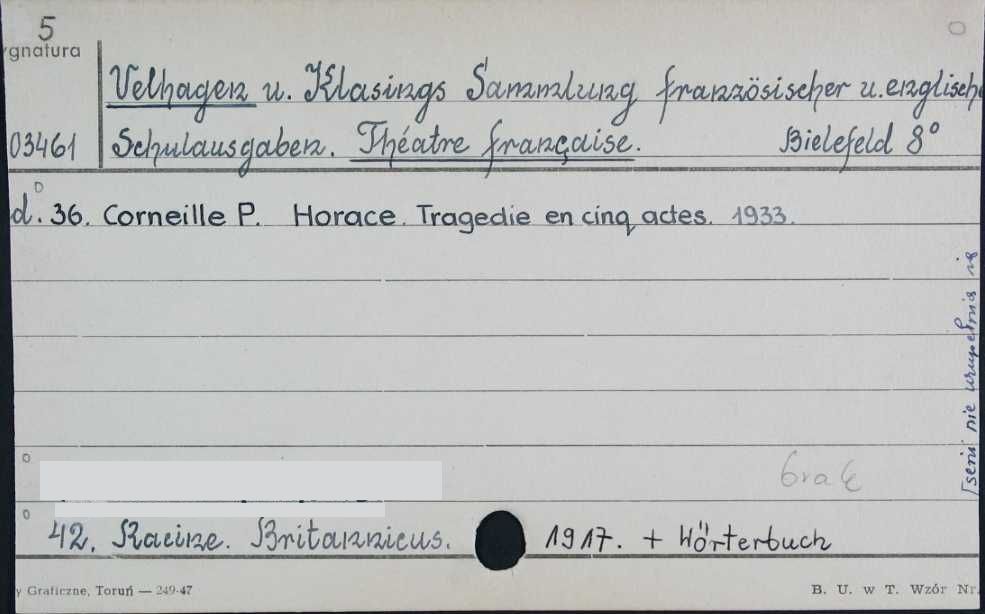 5
ygnatura
Velhagen u. Klasings Sammlung französischer u. englische
03461 Schulausgaben. Théatre française. Bielefeld 8°
d. 36. Corneille P. Horace. Tragedie en cinq actes. 1933.
serii nie uzupełnia się
brak
42. Racine. Britannicus. 1917. + Wörterbuch
y Graficzne, Toruń — 249-47 B. U. w T. Wzór Nr.